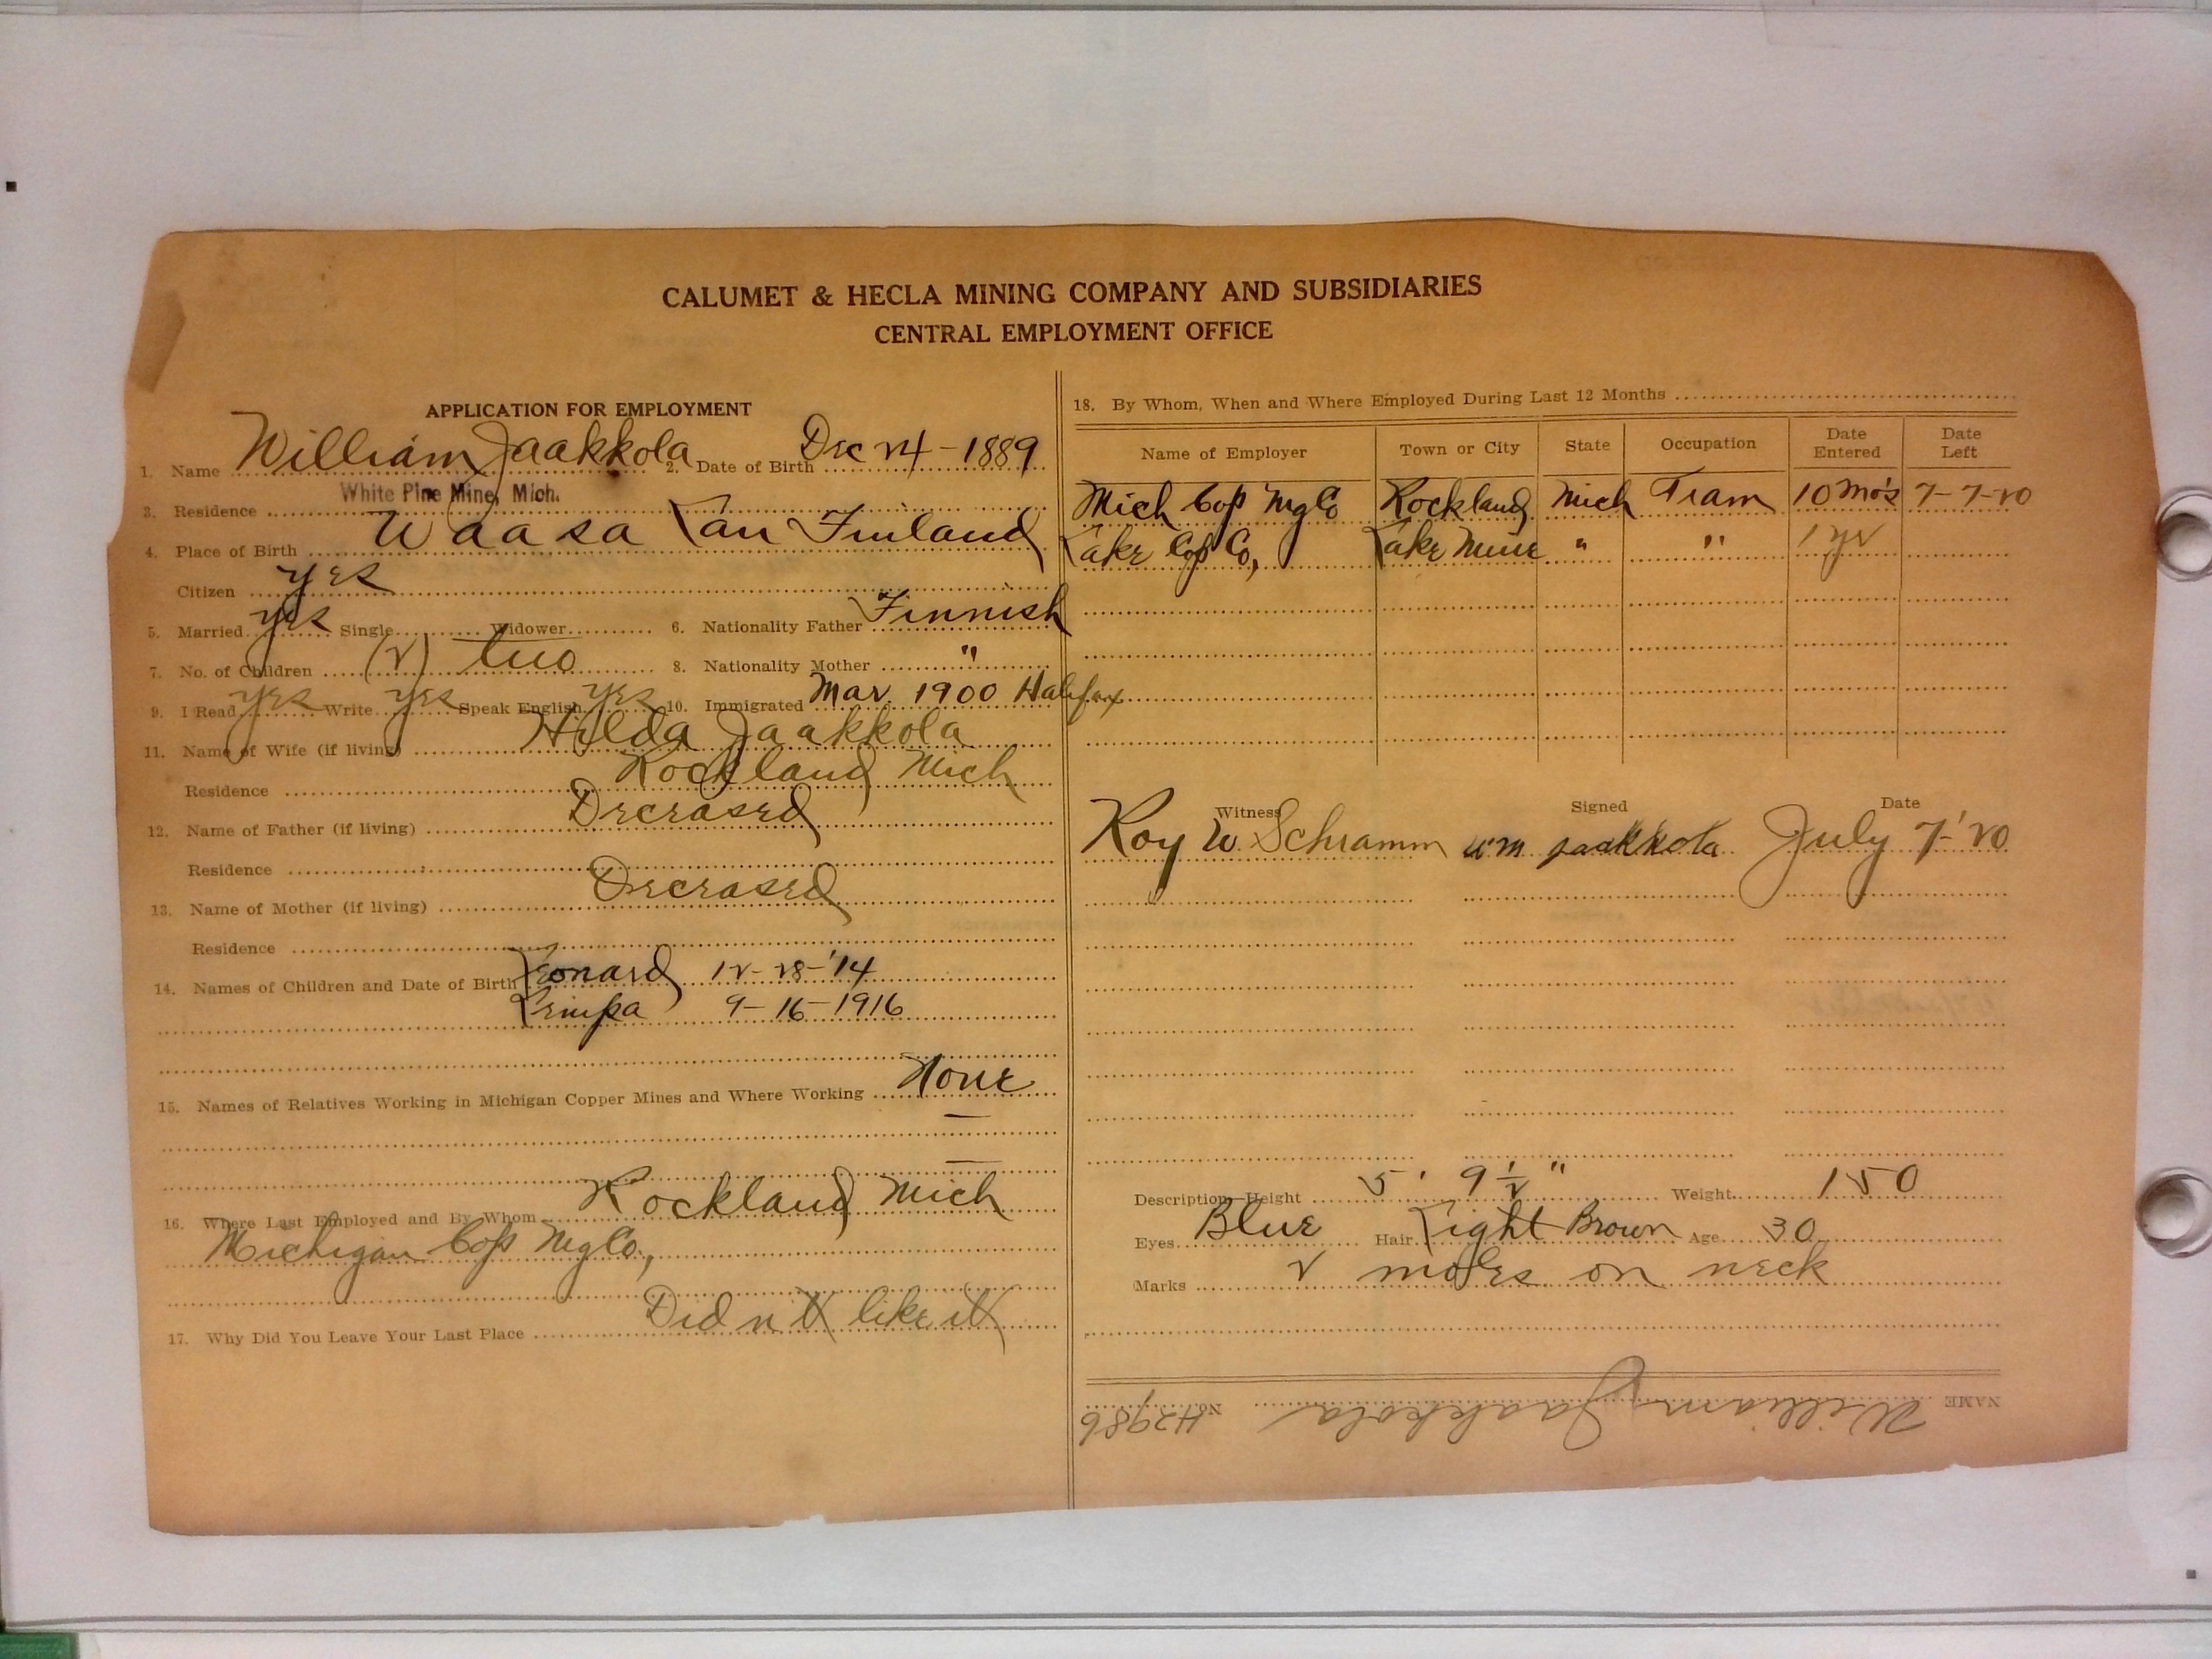 CALUMET & HECLA MINING COMPANY AND SUBSIDIARIES
CENTRAL EMPLOYMENT OFFICE
APPLICATION FOR EMPLOYMENT
1. Name William Jaakkola 2. Date of Birth Dec 24-1889
White Pine Mine, Mich.
3. Residence
4. Place of Birth Waasa Län Finland
Citizen yes
5. Married yes Single Widower 6. Nationality Father Finnish
7. No. of Children (2) two 8. Nationality Mother "
9. I Read yes Write yes Speak English yes 10. Immigrated Mar 1900 Halifax
11. Name of Wife (if living) Hilda Jaakkola
Residence Rockland Mich
12. Name of Father (if living) Deceased
Residence
13. Name of Mother (if living) Deceased
Residence
14. Names of Children and Date of Birth Leonard 12-28-'14
Lempa 9-16-1916
15. Names of Relatives Working in Michigan Copper Mines and Where Working None
16. Where Last Employed and By Whom Rockland Mich
Michigan Cop Mg Co,
17. Why Did You Leave Your Last Place Didn't like it
18. By Whom, When and Where Employed During Last 12 Months
Name of Employer Town or City State Occupation Date Entered Date Left
Mich Cop Mg Co Rockland Mich Tram 10 Mo's 7-7-20
Lake Cop Co, Lake Mine " " 1 yr
Witness Signed Date
Roy W. Schramm Wm Jaakkola July 7-'20
Description—Height 5' 9 1/2" Weight 150
Eyes Blue Hair Light Brown Age 30
Marks 2 moles on neck
NAME William Jaakkola No. H2986